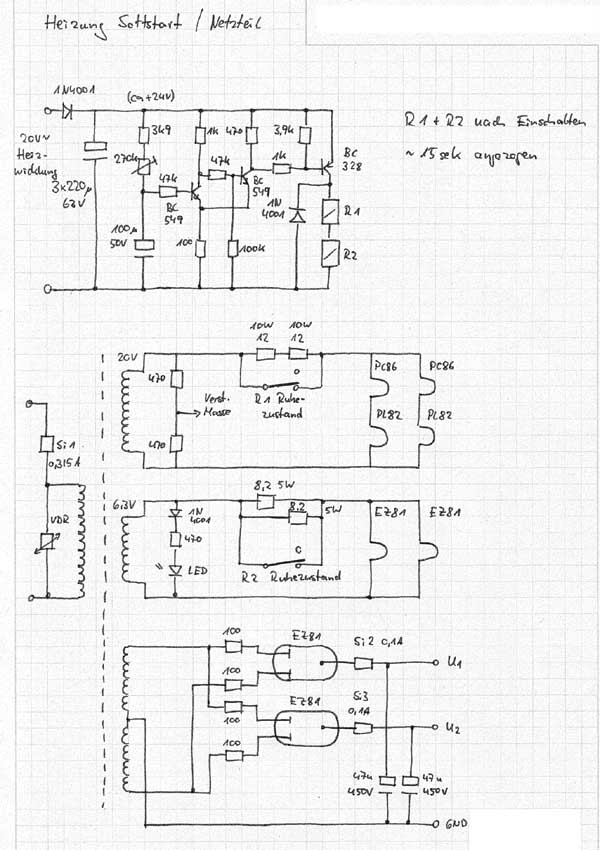 Heizung Softstart / Netzteil
1N4001
(ca + 24V)
20V~
Heiz-
wicklung
3x220µ
63V
3k9
270k
47k
100µ
50V
BC
549
1k
100
47k
470
BC
549
100k
3,9k
1k
1N
4001
BC
328
R1
R2
R1 + R2 nach Einschalten
~ 15 sek angezogen
20V
470
470
Verst.
Masse
10W 10W
12 12
R1 Ruhe-
zustand
PC86 PC86
PL82 PL82
Si1
0,315A
VDR
6,3V
1N
4001
470
LED
8,2 5W
8,2 5W
R2 Ruhezustand
EZ81 EZ81
100
100
100
100
EZ81
EZ81
Si2 0,1A
Si3
0,1A
U1
U2
47u 47u
450V 450V
GND